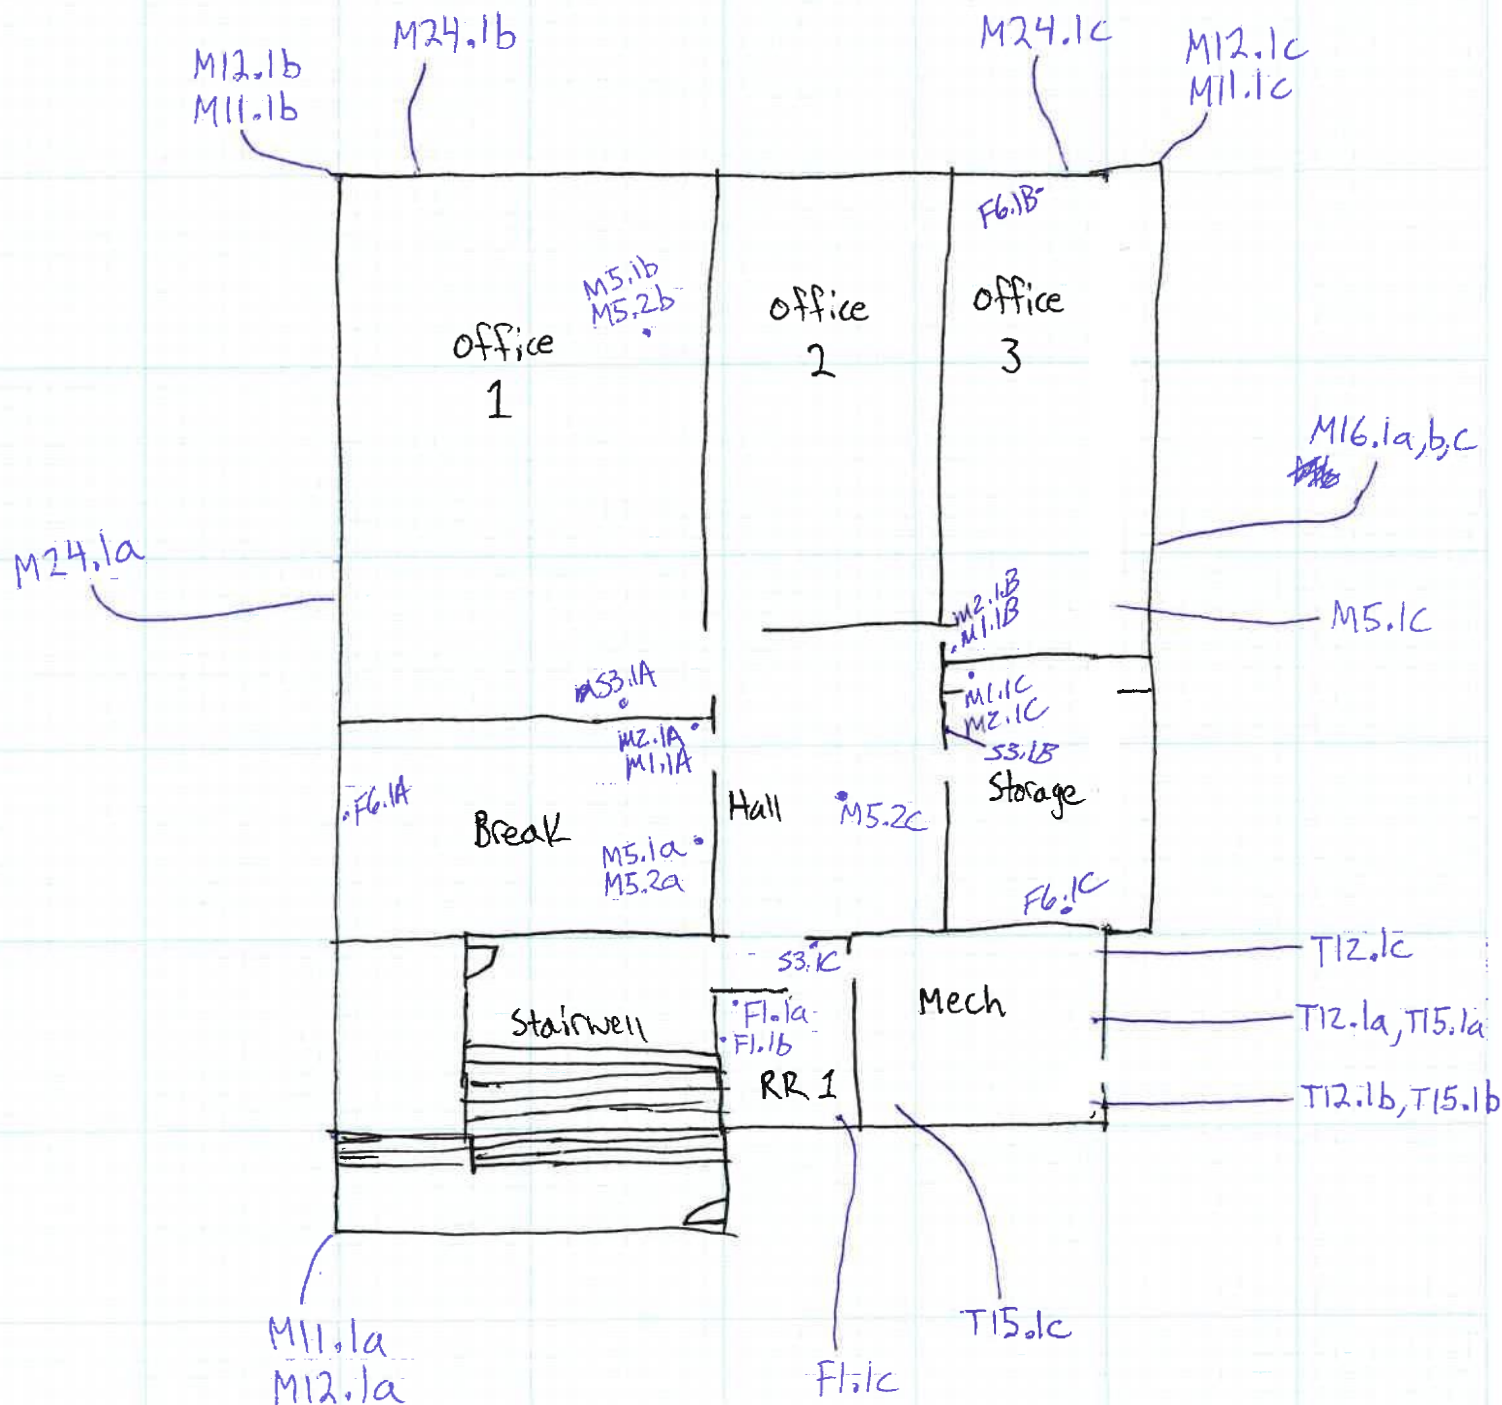 M24.1b
M24.1c
M12.1b
M11.1b
M12.1c
M11.1c
F6.1B
M5.1b
M5.2b
Office
1
Office
2
Office
3
M16.1a,b,c
M24.1a
M2.1B
M1.1B
M5.1c
S3.1A
M1.1C
M2.1C
M2.1A
M1.1A
S3.1B
F6.1A
Break
Hall
M5.2c
Storage
M5.1a
M5.2a
F6.1C
S3.1C
T12.1c
Stairwell
F1.1a
F1.1b
Mech
T12.1a, T15.1a
RR 1
T12.1b, T15.1b
M11.1a
M12.1a
T15.1c
F1.1c